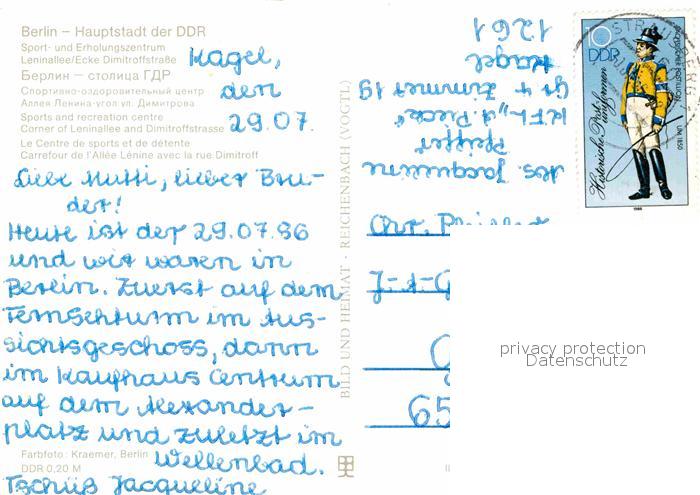 Berlin – Hauptstadt der DDR
Sport- und Erholungszentrum
Leninallee/Ecke Dimitroffstraße
Берлин – столица ГДР
Спортивно-оздоровительный центр
Аллея Ленина-угол ул. Димитрова
Sports and recreation centre
Corner of Leninallee and Dimitroffstrasse
Le Centre de sports et de détente
Carrefour de l'Allée Lénine avec la rue Dimitroff
Kagel,
den
29.07.
Liebe Mutti, lieber Bru-
der!
Heute ist der 29.07.86
und wir waren in
Berlin. Zuerst auf dem
Fernsehturm im Aus-
sichtsgeschoss, dann
im Kaufhaus Centrum
auf dem Alexander-
platz und zuletzt im
Wellenbad.
Tschüß Jacqueline
Farbfoto: Kraemer, Berlin
DDR 0,20 M
BILD UND HEIMAT · REICHENBACH (VOGTL)
Abs. Jacqueline
Pfeiffer
KFL „A. Pieck"
Gr 4 Zimmer 19
Kagel
1261
Chr.
J.-t-G
65
10
DDR
Historische Post-
uniformen
UM 1850
1986
privacy protection
Datenschutz